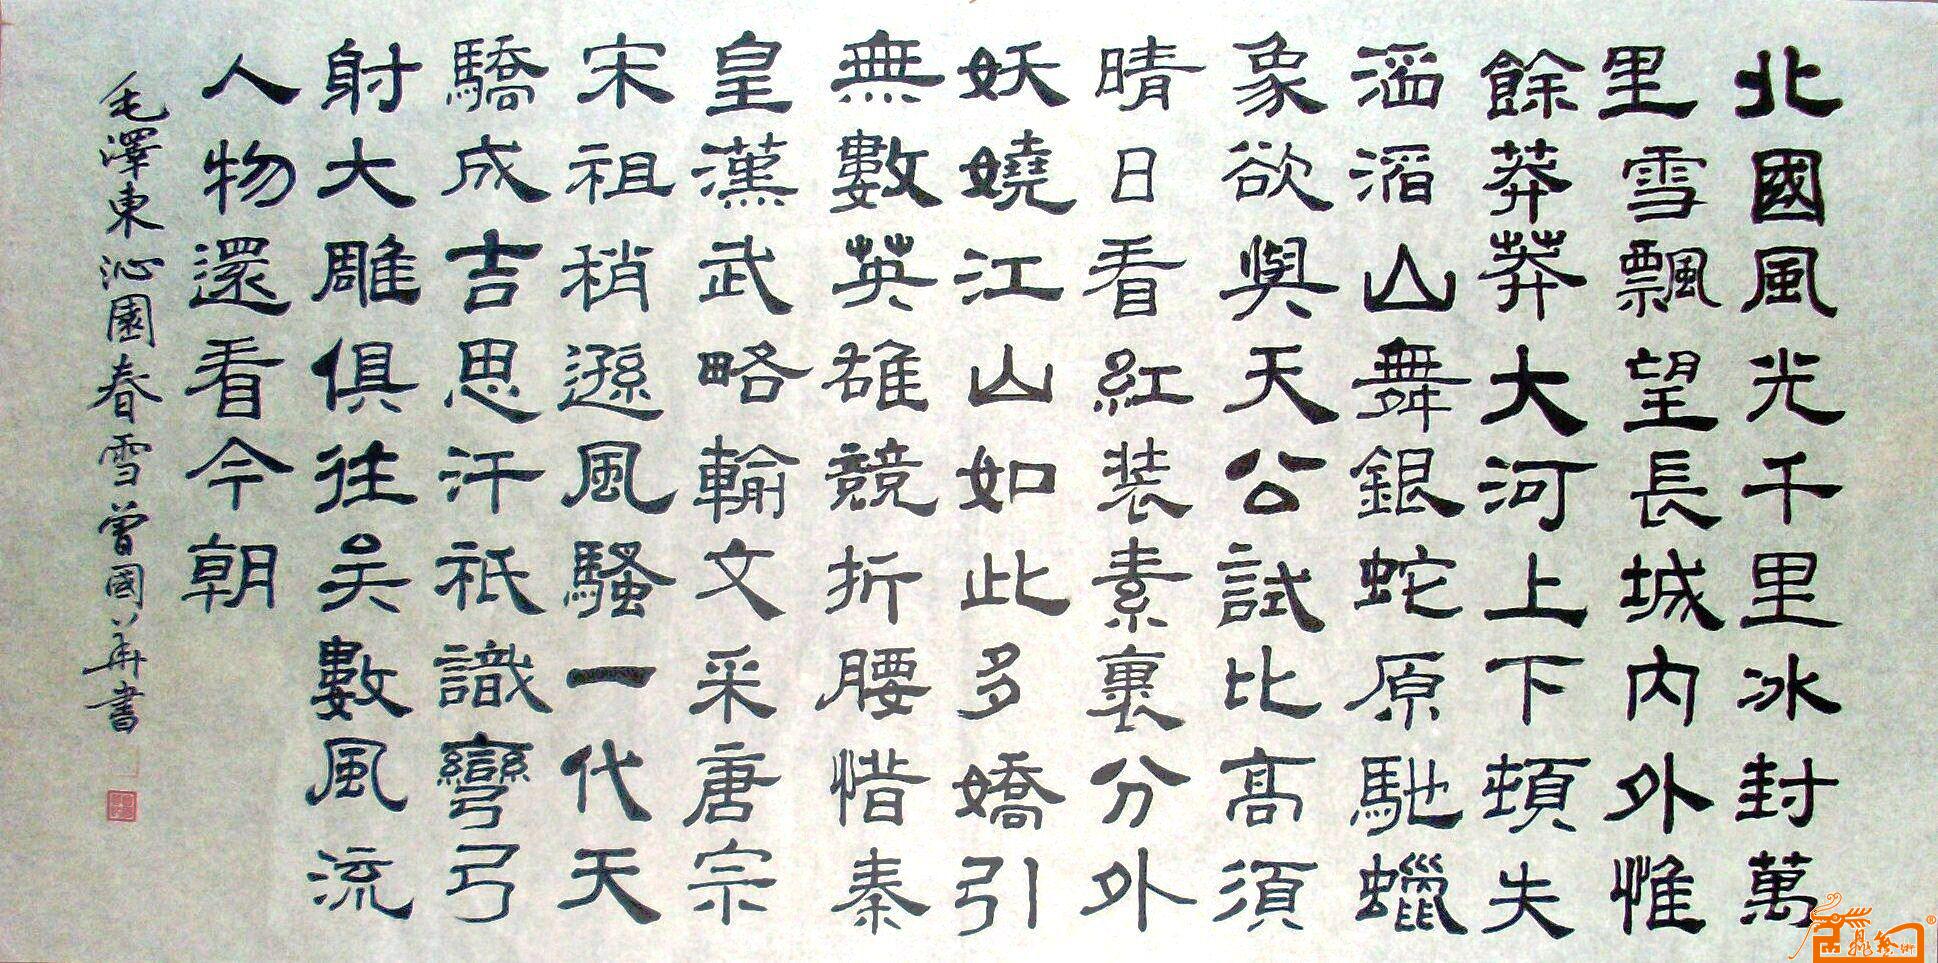 北國風光千里冰封萬
里雪飄望長城內外惟
餘莽莽大河上下頓失
滔滔山舞銀蛇原馳蠟
象欲與天公試比高須
晴日看紅装素裹分外
妖嬈江山如此多嬌引
無數英雄競折腰惜秦
皇漢武略輸文采唐宗
宋祖稍遜風騷一代天
驕成吉思汗祇識彎弓
射大雕俱往矣數風流
人物還看今朝
毛澤東沁園春雪曾國華書